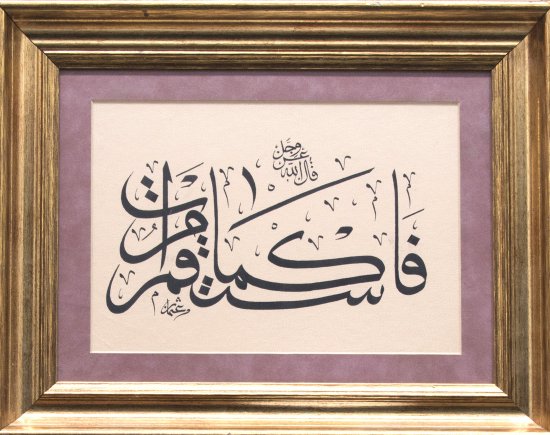 قال الله عز وجل
فاستقم كما أمرت
عثمان